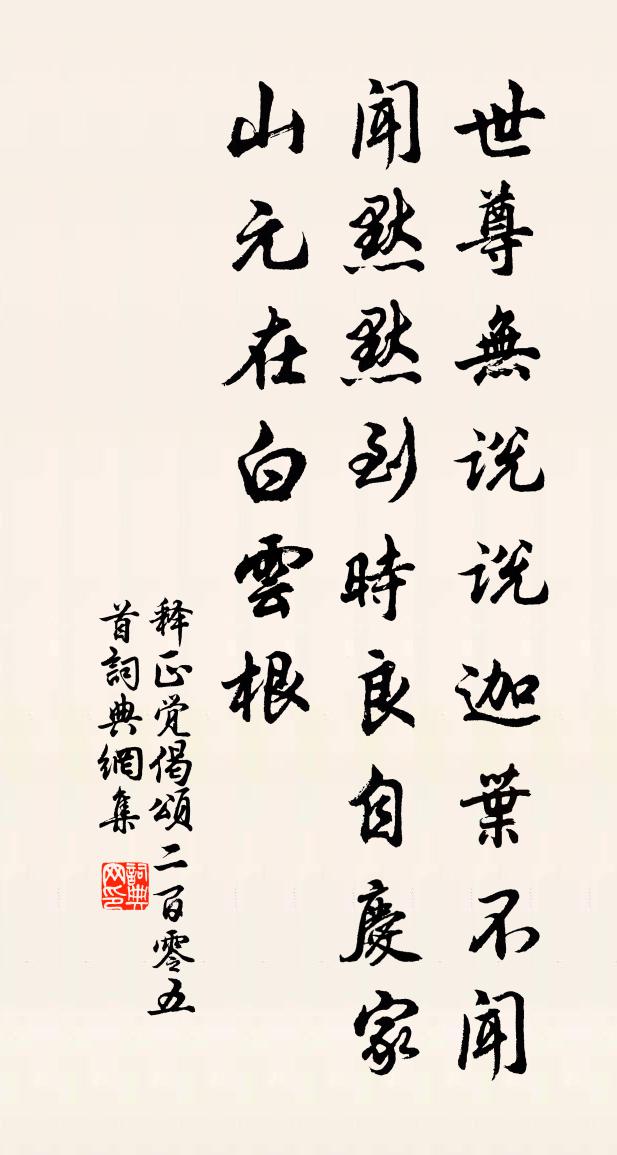 世尊無说说迦葉不闻
闻默默到時良自慶家
山元在白雲根
释正觉偈頌二百零五
首詞典網集
詞典网印